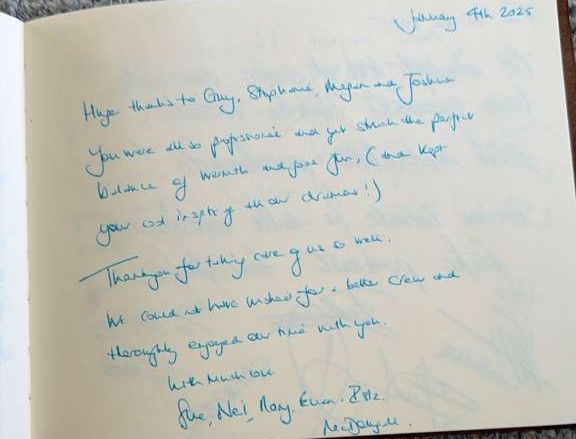 January 4th 2025
Huge thanks to Guy, Stephanie, Megan and Joshua
You were all so professional and yet struck the perfect
balance of warmth and good fun, (and kept
your cool inspite of all our dramas!)
Thankyou for taking care of us so well.
We could not have wished for a better crew and
thoroughly enjoyed our time with you.
With much love
Sue, Neil, Rory, Euan,